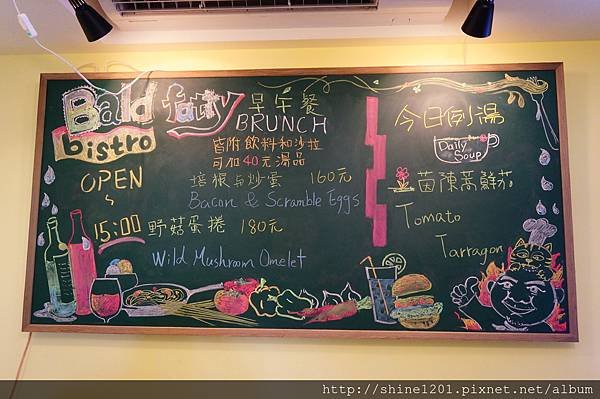 Bald fatty
bistro
OPEN
~
15:00
早午餐
BRUNCH
皆附飲料和沙拉
可加40元湯品
培根与炒蛋 160元
Bacon & Scramble Eggs
野菇蛋捲 180元
Wild Mushroom Omelet
今日例湯
Daily Soup
茵陳蒿鮮茄
Tomato
Tarragon
http://shine1201.pixnet.net/album